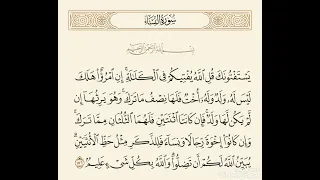 سُورَةُ النِّسَاءِ
بِسْمِ اللَّهِ الرَّحْمَٰنِ الرَّحِيمِ
يَسْتَفْتُونَكَ قُلِ اللَّهُ يُفْتِيكُمْ فِي الْكَلَالَةِ إِنِ امْرُؤٌا هَلَكَ
لَيْسَ لَهُ وَلَدٌ وَلَهُ أُخْتٌ فَلَهَا نِصْفُ مَا تَرَكَ وَهُوَ يَرِثُهَا إِن
لَّمْ يَكُن لَّهَا وَلَدٌ فَإِن كَانَتَا اثْنَتَيْنِ فَلَهُمَا الثُّلُثَانِ مِمَّا تَرَكَ
وَإِن كَانُوا إِخْوَةً رِّجَالًا وَنِسَاءً فَلِلذَّكَرِ مِثْلُ حَظِّ الْأُنثَيَيْنِ
يُبَيِّنُ اللَّهُ لَكُمْ أَن تَضِلُّوا وَاللَّهُ بِكُلِّ شَيْءٍ عَلِيمٌ ١٧٦